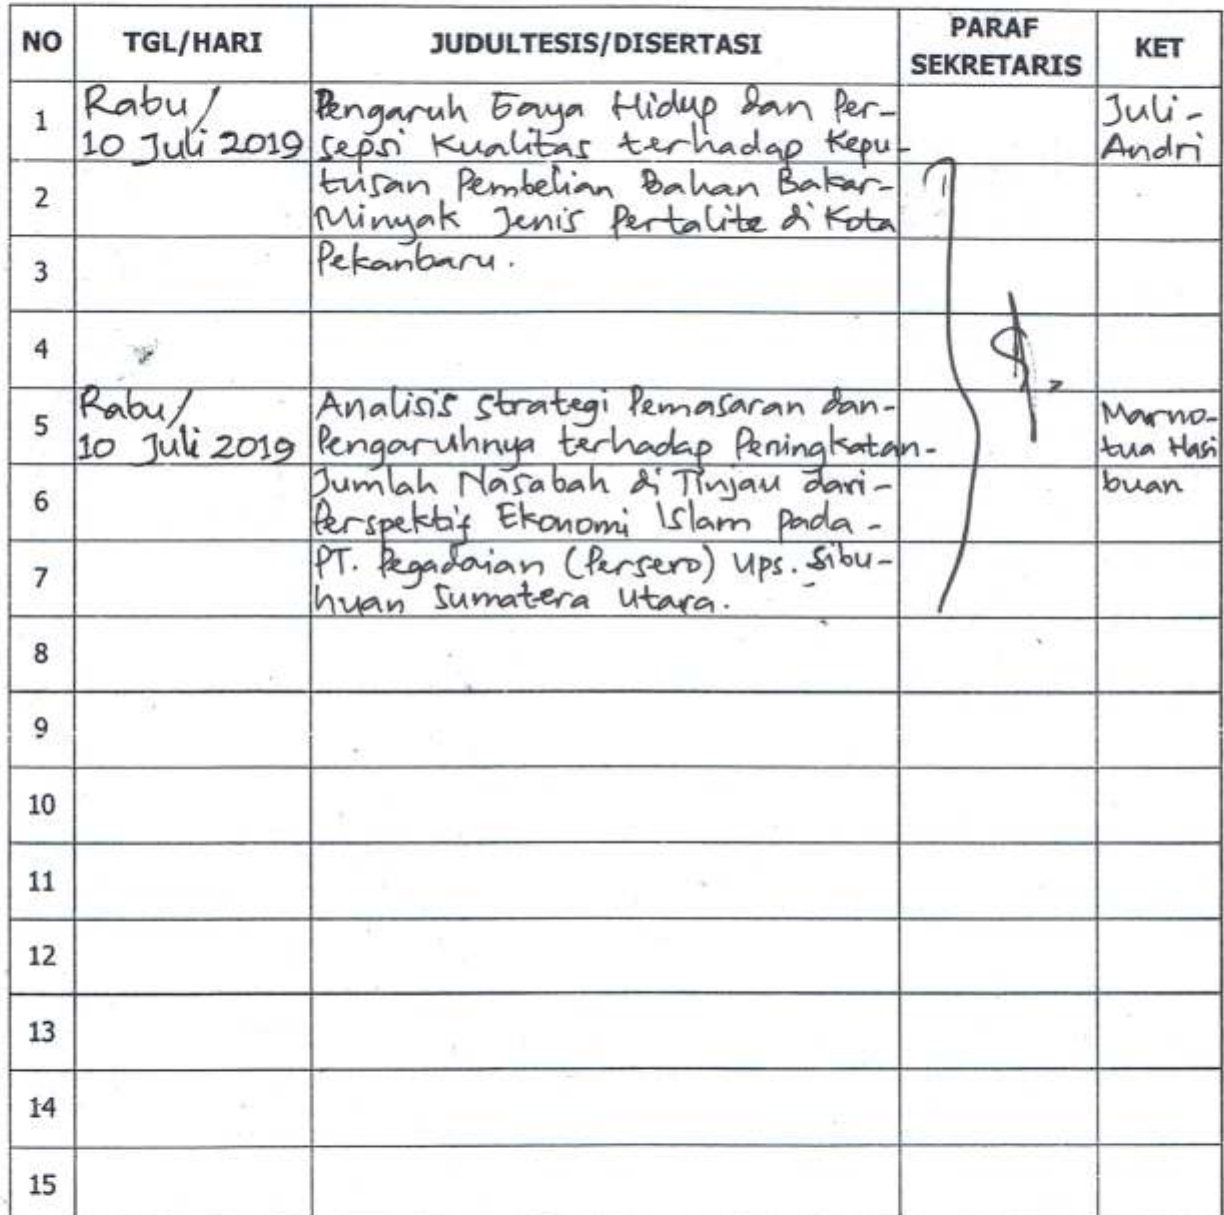 NO TGL/HARI JUDULTESIS/DISERTASI PARAF SEKRETARIS KET
1 Rabu/ Pengaruh Gaya Hidup dan Per- Juli-
10 Juli 2019 sepsi Kualitas terhadap Kepu- Andri
2 tusan Pembelian Bahan Bakar-
Minyak Jenis Pertalite di Kota
3 Pekanbaru.
4
5 Rabu/ Analisis Strategi Pemasaran dan- Marno-
10 Juli 2019 Pengaruhnya terhadap Peningkatan- tua Hasi
6 Jumlah Nasabah di Tinjau dari- buan
Perspektif Ekonomi Islam pada-
7 PT. Pegadaian (Persero) Ups. Sibu-
huan Sumatera Utara.
8
9
10
11
12
13
14
15